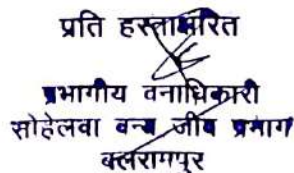 प्रति हस्ताक्षरित
प्रभागीय वनाधिकारी
सोहेलवा वन्य जीव प्रभाग
बलरामपुर